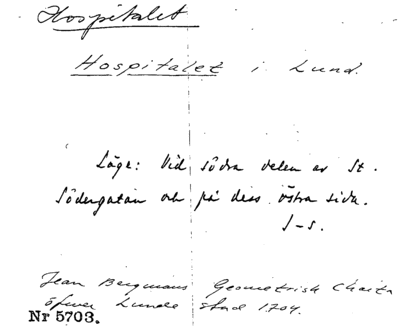 Hospitalet
Hospitalet i Lund.
Läge: Vid södra delen av St.
Södergatan och på dess östra sida.
S-s.
Jean Bergmans Geometrisk Charta
öfwer Lunde stad 1704.
Nr 5703.